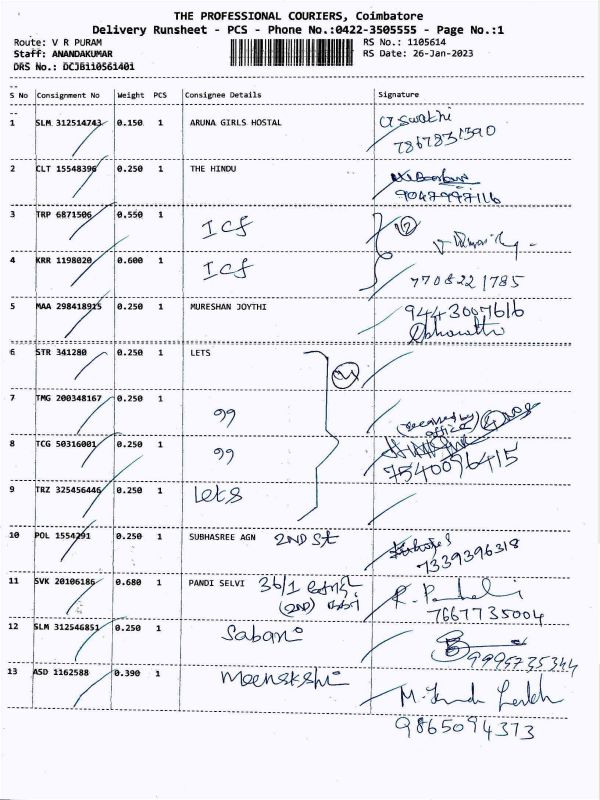 THE PROFESSIONAL COURIERS, Coimbatore
Delivery Runsheet - PCS - Phone No.:0422-3505555 - Page No.:1
Route: V R PURAM RS No.: 1105614
Staff: ANANDAKUMAR RS Date: 26-Jan-2023
DRS No.: DCJB110561401
S No Consignment No Weight PCS Consignee Details Signature
1 SLM 312514743 0.150 1 ARUNA GIRLS HOSTAL G Swathi
7867831390
2 CLT 15548396 0.250 1 THE HINDU
9047997116
3 TRP 6871506 0.550 1 Icf (2)
4 KRR 1198020 0.600 1 Icf 7708221785
5 MAA 298418915 0.250 1 MURESHAN JOYTHI 9443007616
6 STR 341280 0.250 1 LETS
7 TMG 200348167 0.250 1 99 (received by
office)
8 TCG 50316001 0.250 1 99 7540096415
9 TRZ 325456446 0.250 1 Lets
10 POL 1554291 0.250 1 SUBHASREE AGN 2ND St
7339396318
11 SVK 20106186 0.680 1 PANDI SELVI 36/1
(2ND) R. Pandeli
7667735004
12 SLM 312546851 0.250 1 Sabari 9999735344
13 ASD 1162588 0.390 1 Meenakshi
9865094373